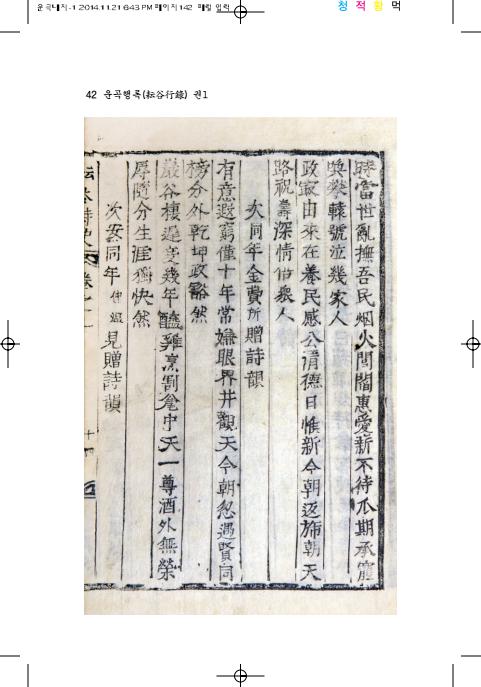 운곡대치-1 2014.11.21 6:43 PM 페이지142 매킨 입력
청 적 황 먹
42 운곡행록(耘谷行錄) 권1
時當世亂撫吾民烟火閭閻惠愛新不待瓜期承寵
喚攀轅號泣幾家人
政寂由來在養民感公淸德日惟新今朝返旆朝天
路祝壽深情伯衆人
次同年金費所贈詩韻
有意遐窮僅十年常嫌眼界井觀天今朝忽遇賢同
榜分外乾坤政豁然
巖谷棲遲幾年醯雞烹割瓮中天一尊酒外無榮
辱隨分生涯獨快然
次安同年仲溫見贈詩韻
耘谷詩史卷之一
十